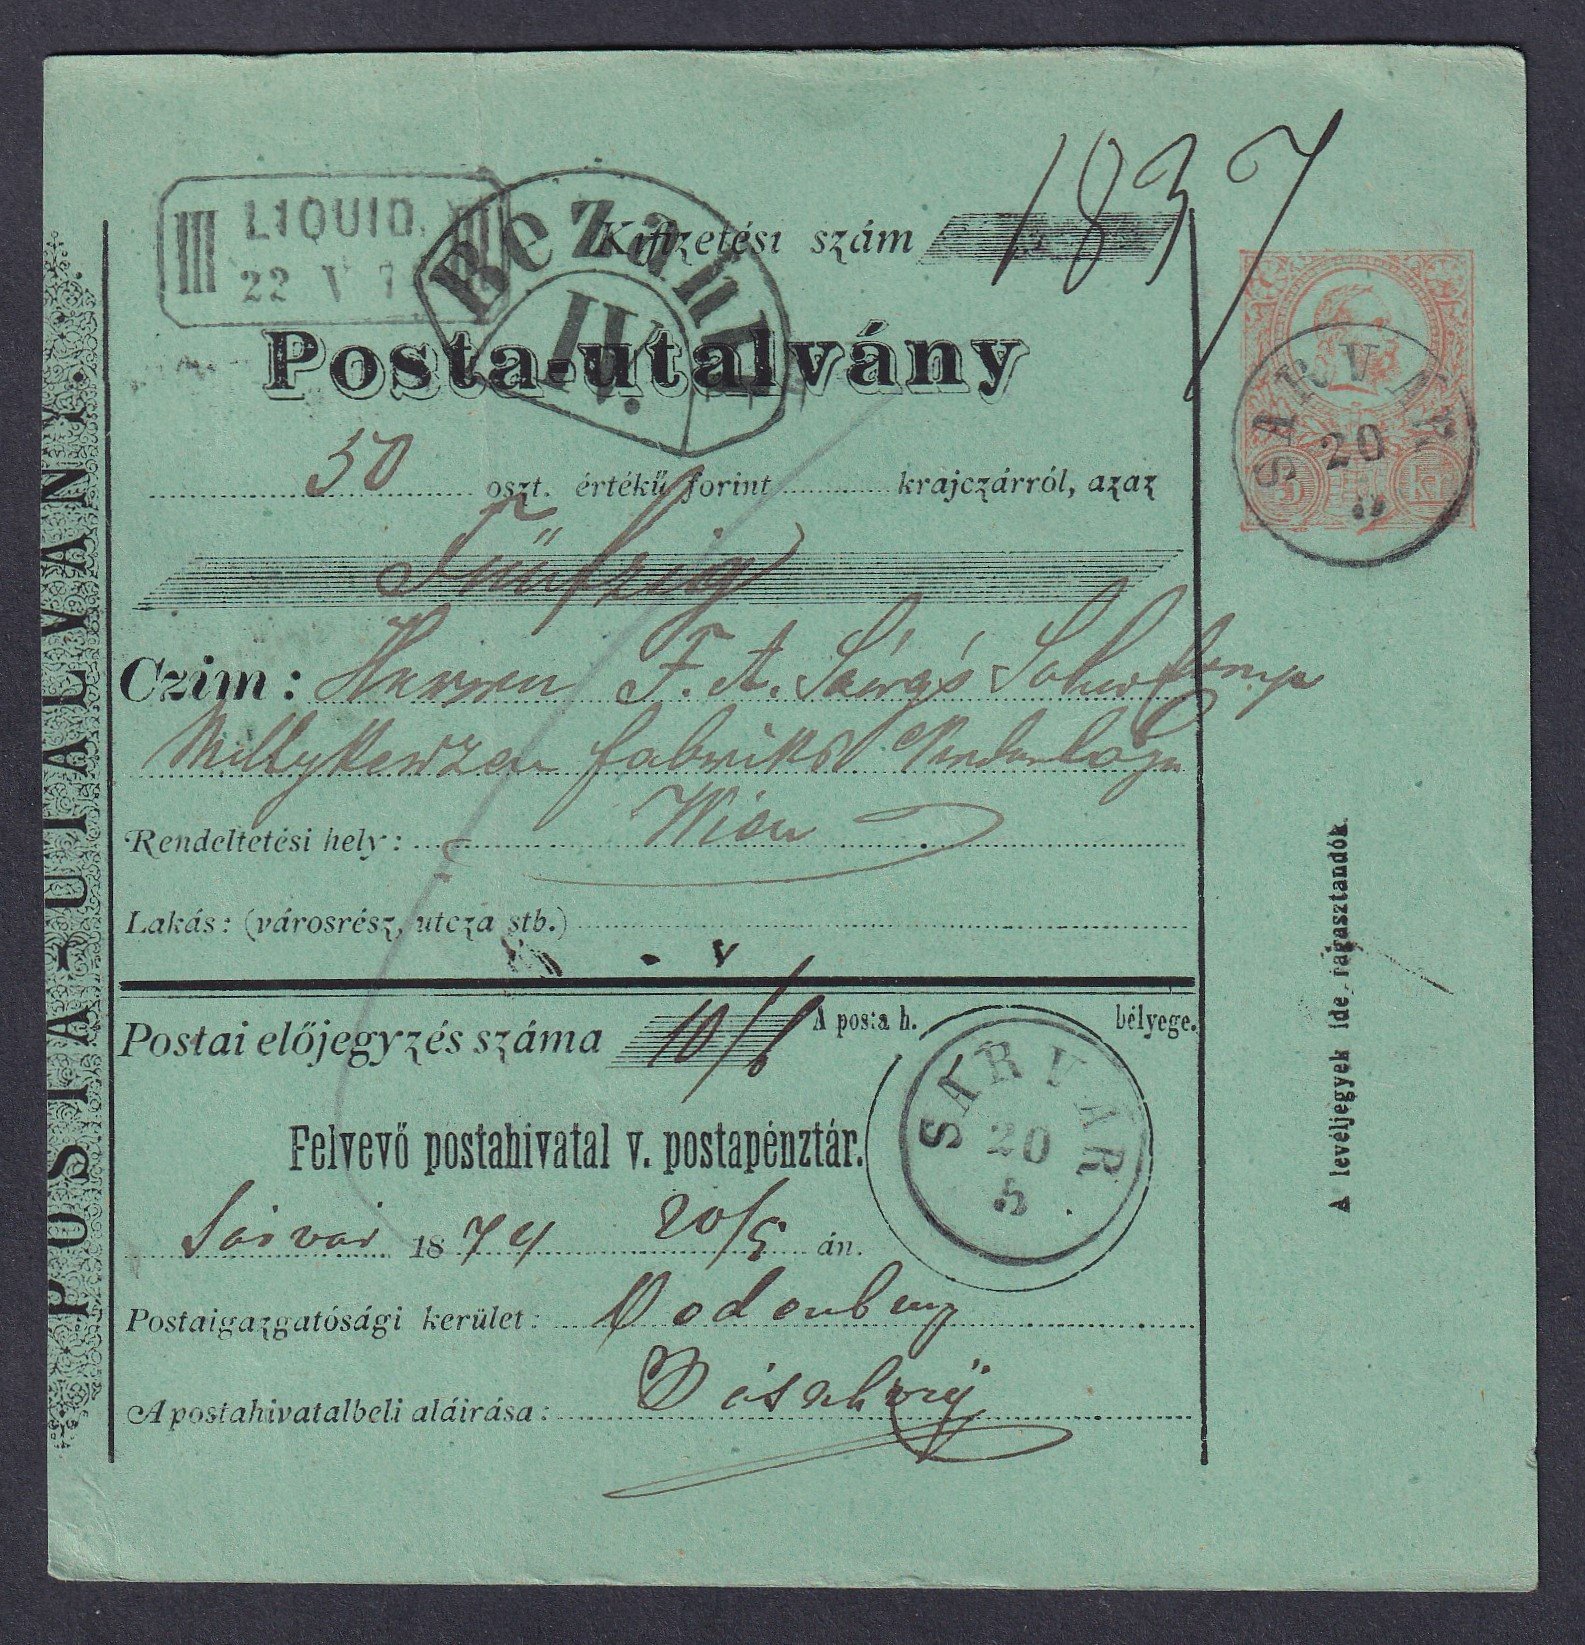 1837
III LIQUID. III
22 V 7
Bezahlt
IV.
Kifizetési szám
Posta-utalvány
50 oszt. értékű forint krajczárról, azaz
Fünfzig
Czim: Herren F. A. Sárg's Sohn &
Millykerzen fabriks Niederlage
Rendeltetési hely: Wien
Lakás: (városrész, utcza stb.)
Postai előjegyzés száma 10/6
A posta h. bélyege.
Felvevő postahivatal v. postapénztár.
Sárvár 1874 20/5 án.
Postaigazgatósági kerület: Oedenburg
A postahivatalbeli aláirása:
SÁRVÁR
20
5
SÁRVÁR
20
5
5 kr
A levéljegyek ide ragasztandók.
POSTA-UTALVÁNY.